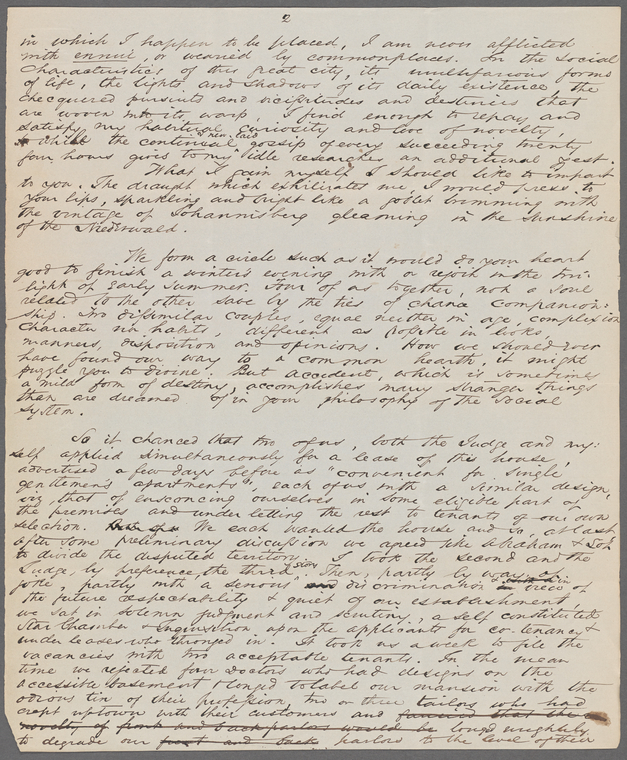 2
in which I happen to be placed, I am never afflicted
with ennui or wearied by commonplaces. In the social
characteristics of this great city, its multifarious forms
of life, the lights and shadows of its daily existence, the
checquered pursuits and vicissitudes and destinies that
are woven into its warp, I find enough to repay and
satisfy my habitual curiosity and love of novelty,
while the continual gossip of every succeeding twenty
four hours gives to my idle researches an additional zest.
What I gain myself I should like to impart
to you. The draught which exhilirates me, I would press to
your lips, sparkling and bright like a goblet brimming with
the vintage of Johannisberg gleaming in the sunshine
of the Niederwald.
We form a circle such as it would do your heart
good to finish a winter's evening with or rejoin in the twi-
light of Early Summer. Four of us together, not a soul
related to the other save by the ties of chance companion-
ship. Two dissimilar couples, equal neither in age, complexion
character nor habits, different as possible in looks,
manners, disposition and opinions. How we should ever
have found our way to a common hearth, it might
puzzle you to divine. But accident, which is sometimes
a mild form of destiny, accomplishes many stranger things
than are dreamed of in your philosophy of the social
system.
So it chanced that two of us, both the Judge and my-
self applied simultaneously for a lease of this house,
advertised a few days before as "convenient for single
gentlemen's apartments", each of us with a similar design,
viz, that of ensconcing ourselves in some eligible part of
the premises and underletting the rest to tenants of our own
selection. We each wanted the house and so, at last
after some preliminary discussion we agreed like Abraham & Lot
to divide the disputed territory. I took the second and the
Judge, by preference the third story. Then, partly by way of
joke, partly with a serious and discrimination view of
the future respectability & quiet of our establishment,
we sat in solemn judgment and scrutiny, a self constituted
Star Chamber & Inquisition upon the applicants for co-tenancy &
under leases who thronged in. It took us a week to fill the
vacancies with two acceptable tenants. In the mean
time we rejected four Doctors who had designs on the
accessible basement & longed to label our mansion with the
odious tin of their profession, two or three tailors who had
crept uptown with their customers and fancied that the
novelty of front and back parlors would be long'd mightily
to degrade our front and back parlors to the level of their